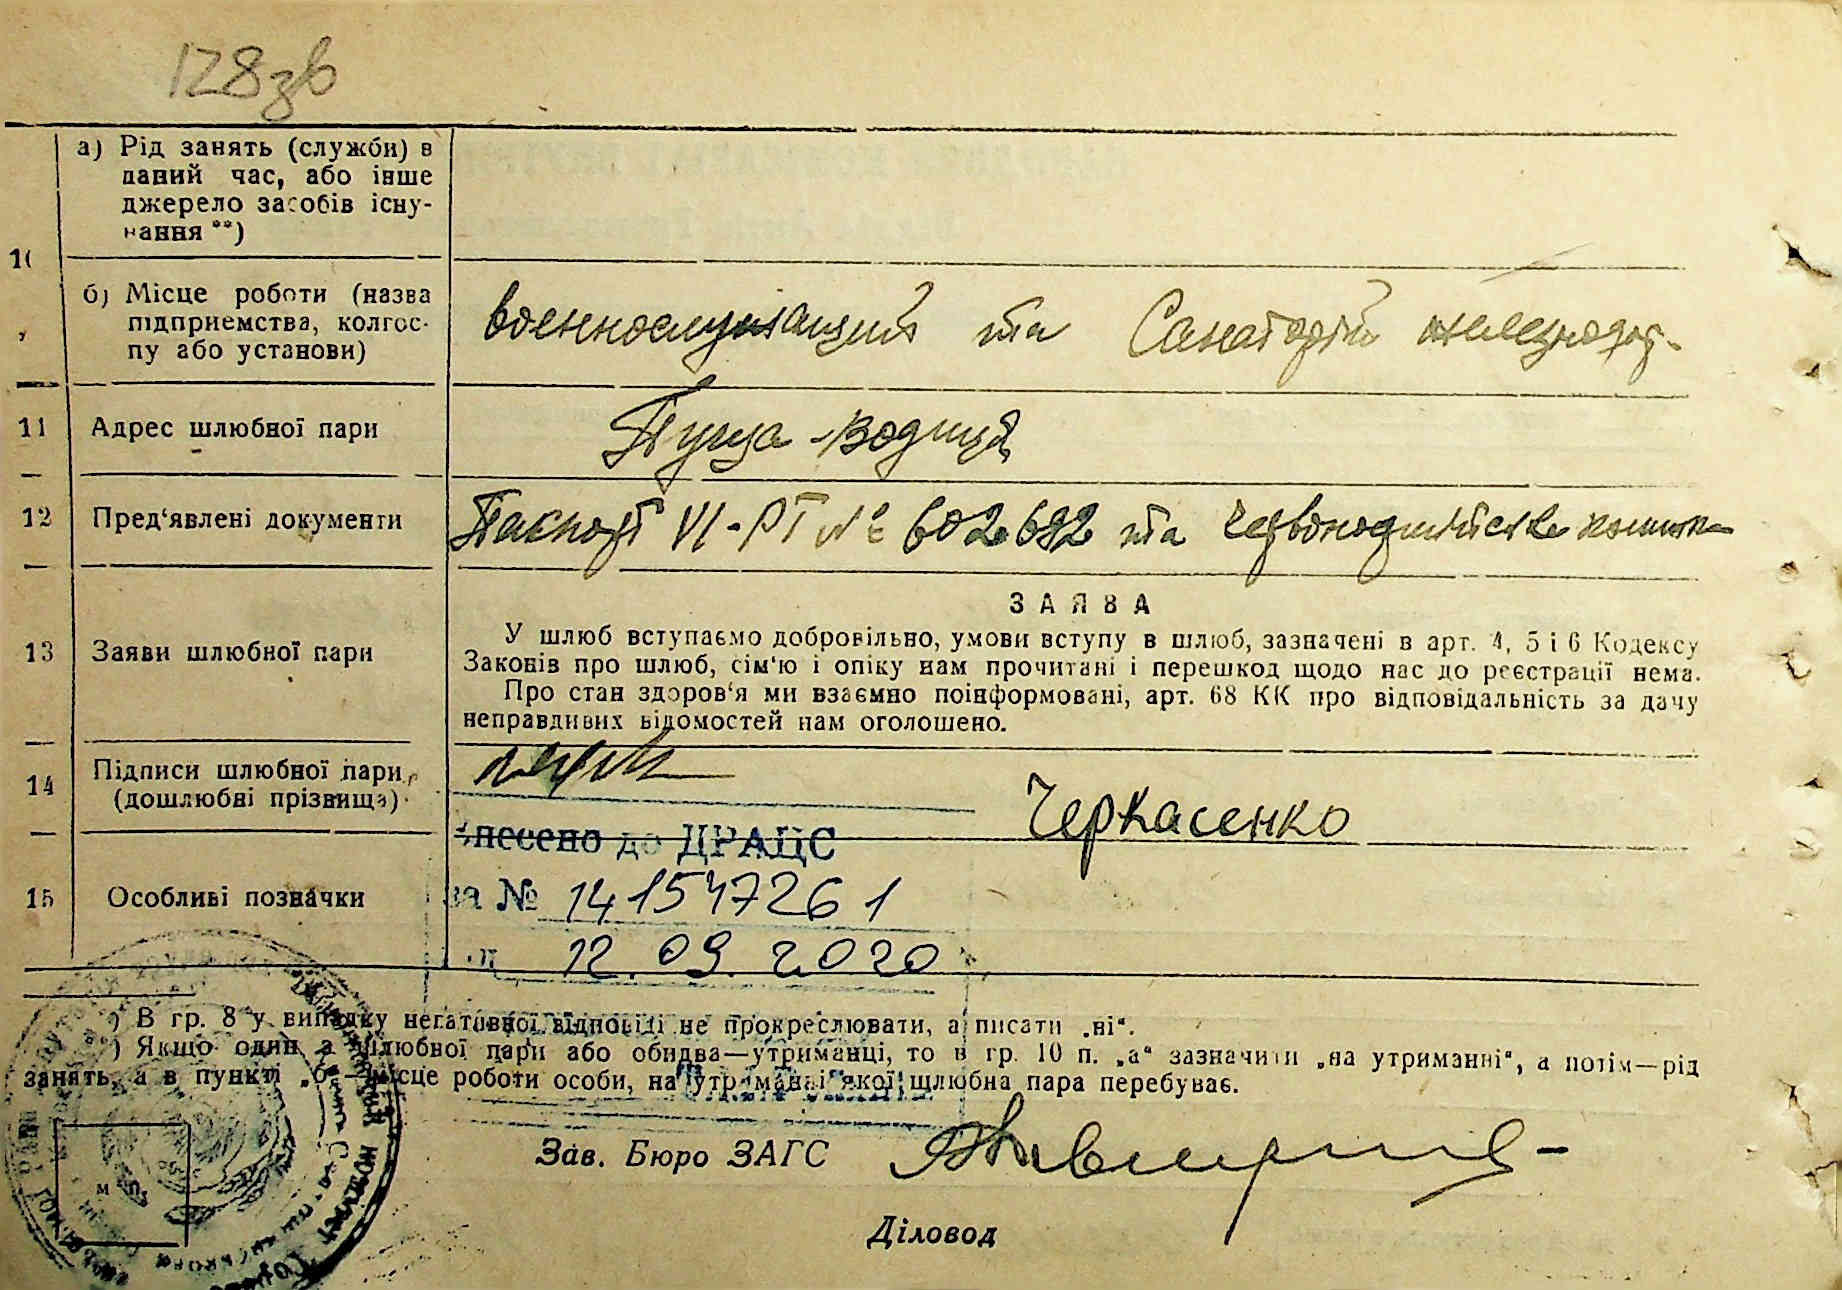 128 зв
а) Рід занять (служби) в
даний час, або інше
джерело засобів існу-
вання **)
10
б) Місце роботи (назва
підприємства, колгос-
пу або установи)
военнослужащий та Санаторій железнодор.
11 Адрес шлюбної пари
Пуща-Водиця
12 Пред'явлені документи
Паспорт VI-РТ № 602692 та червоноармійська книжка
13 Заяви шлюбної пари
ЗАЯВА
У шлюб вступаємо добровільно, умови вступу в шлюб, зазначені в арт. 4, 5 і 6 Кодексу
Законів про шлюб, сім'ю і опіку нам прочитані і перешкод щодо нас до реєстрації нема.
Про стан здоров'я ми взаємно поінформовані, арт. 68 КК про відповідальність за дачу
неправдивих відомостей нам оголошено.
14 Підписи шлюбної пари
(дошлюбні прізвища)
Черкасенко
внесено до ДРАЦС
15 Особливі позначки
за № 141547261
12.09.2020
*) В гр. 8 у випадку негативної відповіді не прокреслювати, а писати „ні“.
**) Якщо один з шлюбної пари або обидва—утриманці, то в гр. 10 п. „а“ зазначити „на утриманні“, а потім—рід
занять, а в пункті „б“—місце роботи особи, на утриманні якої шлюбна пара перебуває.
Зав. Бюро ЗАГС
Діловод